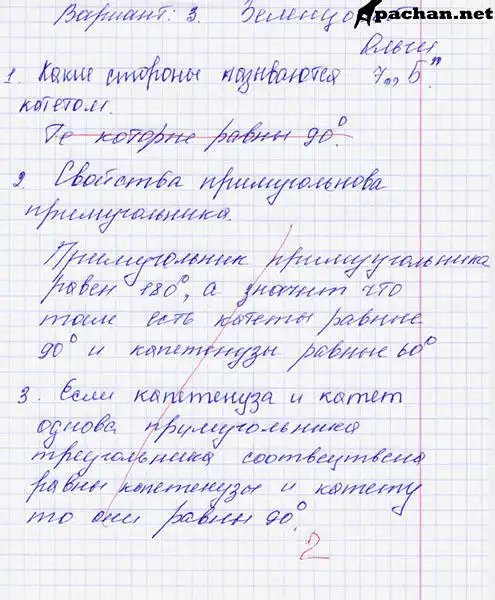 Apachan.net
Вариант: 3.
Ольги
7 „Б"
1. Какие стороны называются
катетом.
Те которые равны 90°.
2. Свойства примуголньова
примугольника.
Примугольник примуугольника
равен 180°, а значит что
там есть катеты равные
90° и капетенузы равные 60°
3. Если капетенуза и катет
однова примугольника
треугольника соотвецтвена
равны капетенузы и катету
то они равны 90°.
2